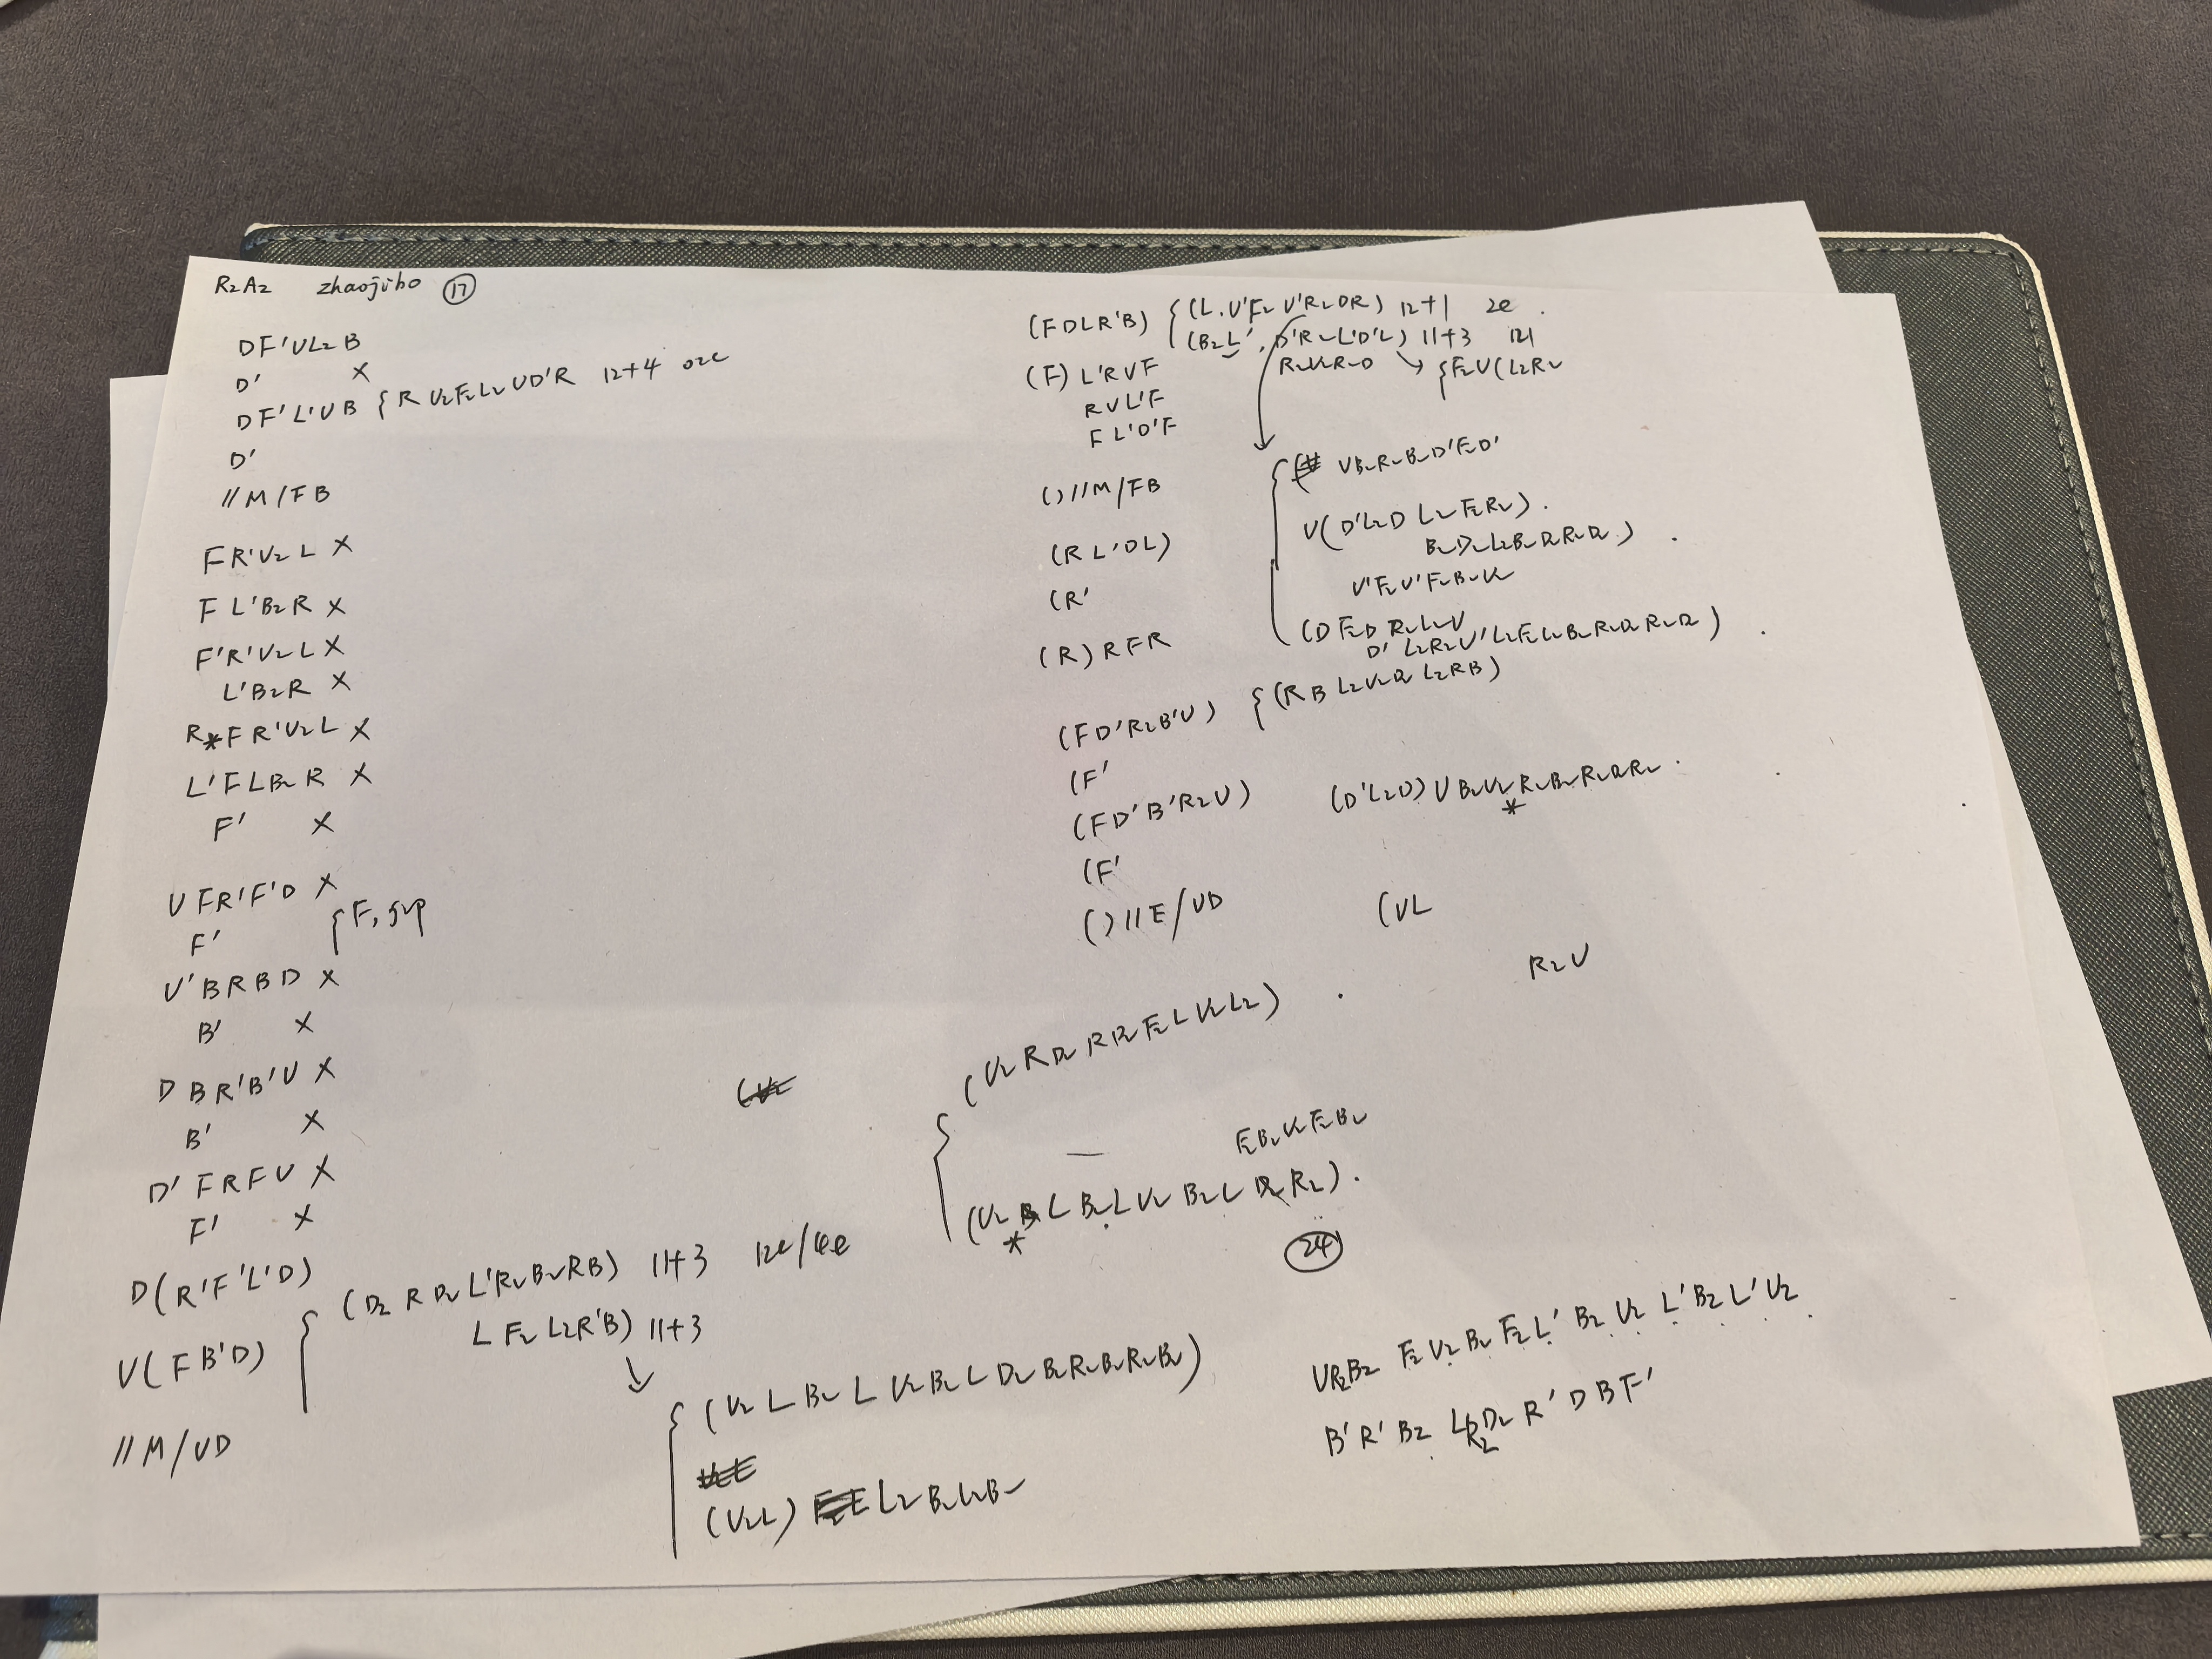 R2A2 zhaojibo 17
DF'UL2B
D' ×
DF'L'UB { R U2F2L2UD'R 12+4 02e
D'
//M/FB
FR'U2L ×
FL'B2R ×
F'R'U2L ×
L'B2R ×
R*FR'U2L ×
L'FLB2R ×
F' ×
UFR'F'D ×
F' {F,
U'BRBD ×
B' ×
DBR'B'U ×
B' ×
D'FRFU ×
F' ×
D(R'F'L'D)
U(FB'D) { (D2 R D2 L'R2B2RB) 11+3 12e/4e
L F2 L2R'B) 11+3
↓
//M/UD
{ (U2 L B2 L U2 B2 L D2 B2 R2 B2 R2 B2)
(U2L) L2 B2 L2 B2
(FDLR'B) { (L.U'F2 U'R2DR) 12+1 2e.
(B2L', D'R2L'D'L) 11+3 121
(F) L'RUF
R2U2R2D ↘ {F2U(L2R2
RUL'F
FL'D'F
()//M/FB
{ UB2R2B2D'F2D'
(RL'DL)
U(D'L2D L2F2R2).
B2D2L2B2D2R2D2).
(R'
U'F2U'F2B2U2
(R)RFR
(DF2D R2L2U
D' L2R2U'L2F2L2B2R2D2R2D2).
(FD'R2B'U) { (RB L2U2D2 L2RB)
(F'
(FD'B'R2U) (D'L2D) U B2U2R2B2R2D2R2.
*
(F'
()//E/UD (UL
R2U
{ (U2 R D2 R B2 F2 L U2 L2).
F2B2U2F2B2
(U2 L B2 L U2 B2 L D2 R2).
*
24
UR2B2 F2 U2 B2 F2 L' B2 U2 L' B2 L' U2
B'R'B2 LR2D2 R' D B F'